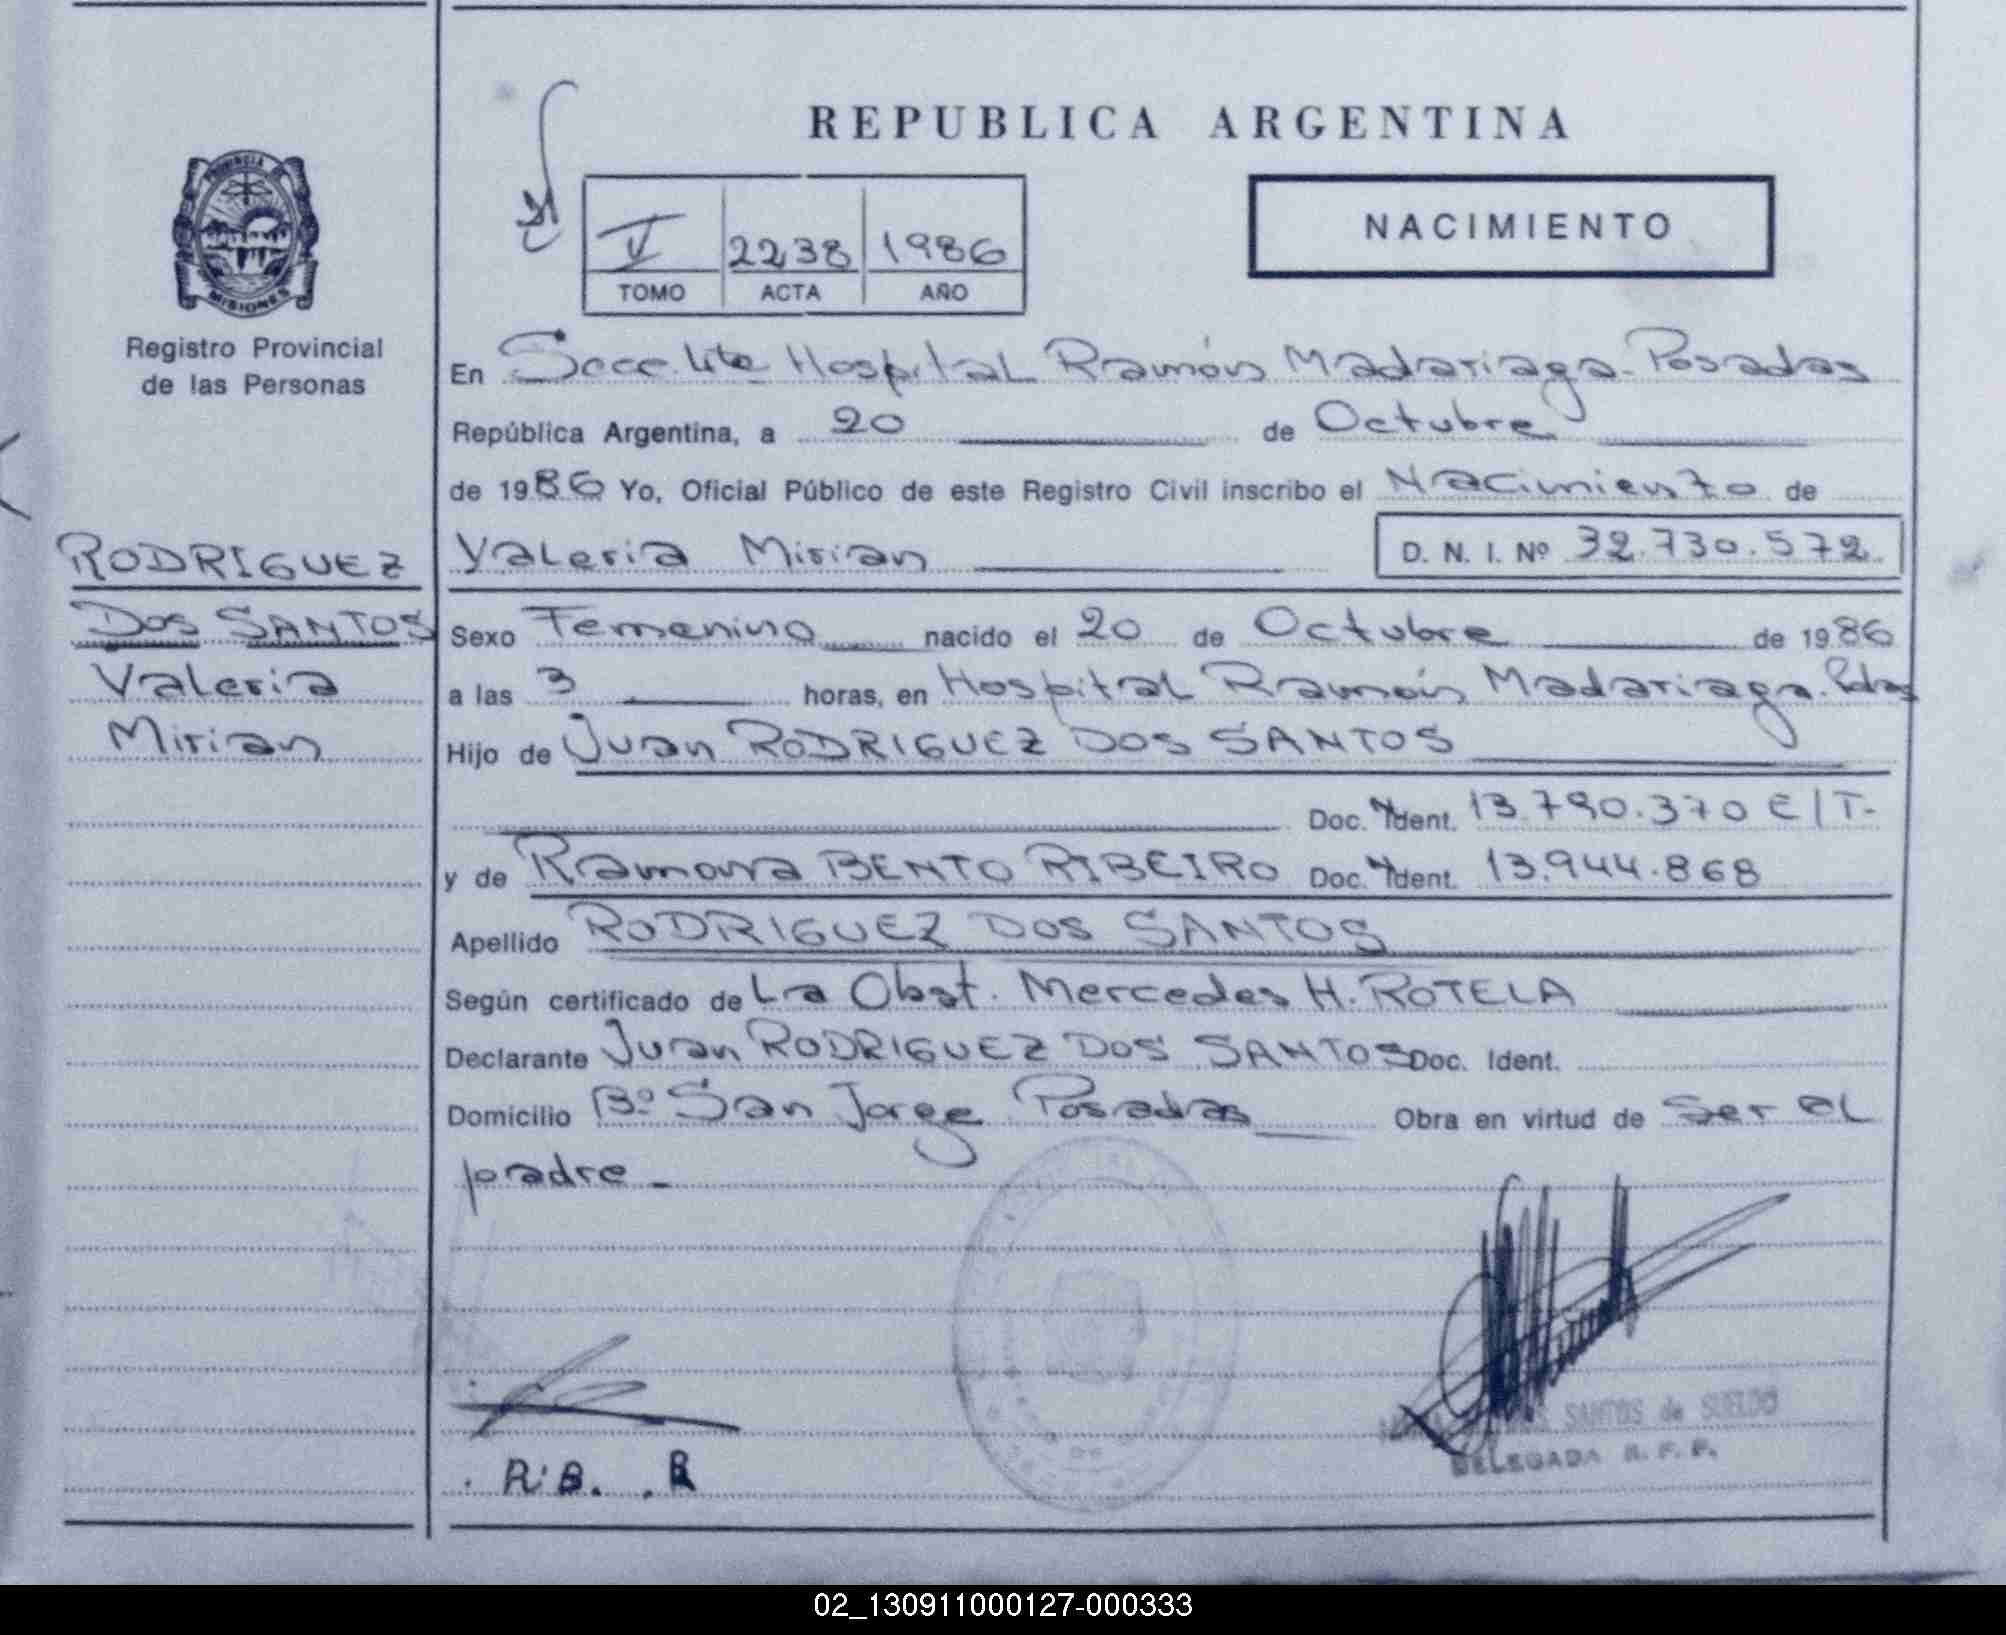 REPUBLICA ARGENTINA
NACIMIENTO
V 2238 1986
TOMO ACTA AÑO
PROVINCIA DE
MISIONES
Registro Provincial
de las Personas
En Secc. Hospital Ramón Madariaga. Posadas
República Argentina, a 20 de Octubre
de 1986 Yo, Oficial Público de este Registro Civil inscribo el Nacimiento de
Valeria Mirian D. N. I. Nº 32.730.572
RODRIGUEZ
DOS SANTOS
Valeria
Mirian
Sexo Femenino nacido el 20 de Octubre de 1986
a las 3 horas, en Hospital Ramón Madariaga. Pdas
Hijo de Juan RODRIGUEZ DOS SANTOS
Doc. Ident. 13.790.370 E/T-
y de Ramona BENTO RIBEIRO Doc. Ident. 13.944.868
Apellido RODRIGUEZ DOS SANTOS
Según certificado de La Obst. Mercedes H. ROTELA
Declarante Juan RODRIGUEZ DOS SANTOS Doc. Ident.
Domicilio Bº San Jorge Posadas Obra en virtud de Ser el
padre-
SANTOS de SUELDO
DELEGADA R. P. P.
R.B. .R
02_130911000127-000333